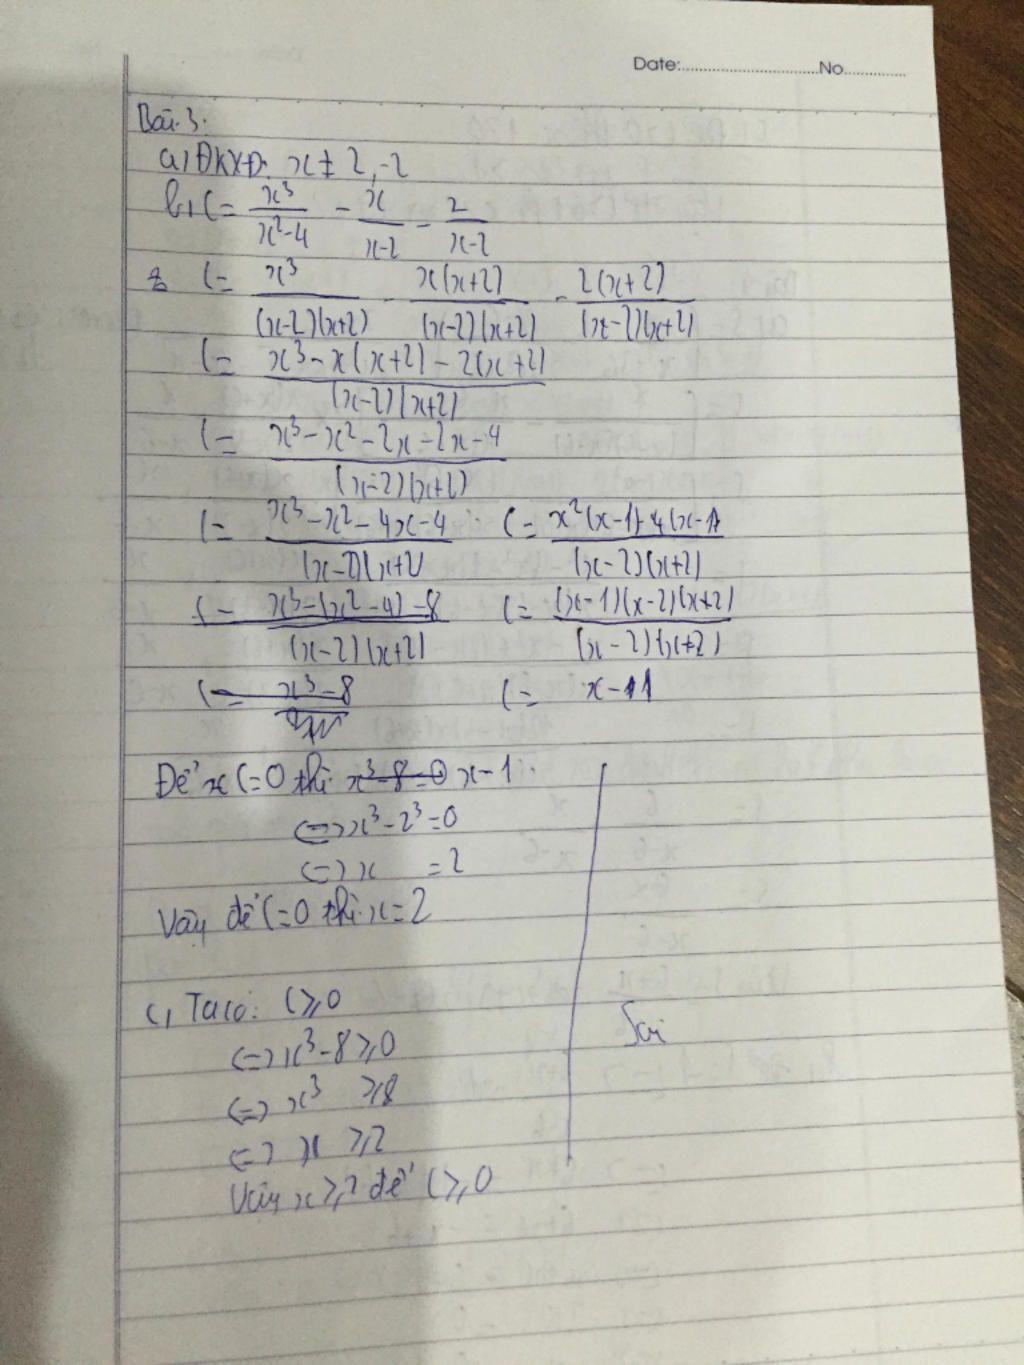 Date:........................No...............
Bài 3.
a) ĐKXĐ: x ≠ 2, -2
b, C = x³/(x²-4) - x/(x-2) - 2/(x-2)
C = x³/((x-2)(x+2)) - x(x+2)/((x-2)(x+2)) - 2(x+2)/((x-2)(x+2))
C = (x³-x(x+2)-2(x+2))/((x-2)(x+2))
C = (x³-x²-2x-2x-4)/((x-2)(x+2))
C = (x³-x²-4x-4)/((x-2)(x+2)) C = (x²(x-1)-4(x-1))/((x-2)(x+2))
C = (x³-(x²-4)-8)/((x-2)(x+2)) C = ((x-1)(x-2)(x+2))/((x-2)(x+2))
C = x³-8 C = x-1
Để C=0 thì x³-8=0 x-1
<=> x³-2³=0
<=> x = 2
Vậy để C=0 thì x=2
c, Ta có: C ⩾ 0
<=> x³-8 ⩾ 0
<=> x³ ⩾ 8
<=> x ⩾ 2
Vậy x ⩾ 2 để C ⩾ 0
Sai